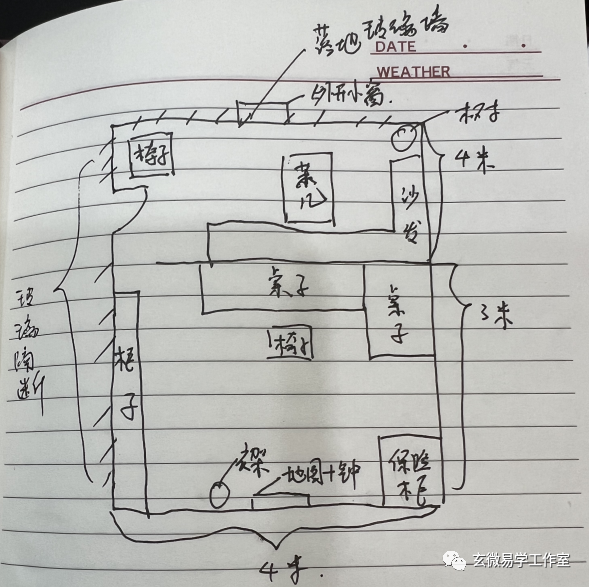 落地玻璃墙
DATE
WEATHER
外开小窗
树木
椅子
茶几
沙发
4米
玻璃隔断
桌子
桌子
3米
椅子
柜子
衣架
地图+钟
保险柜
4米
玄微易学工作室